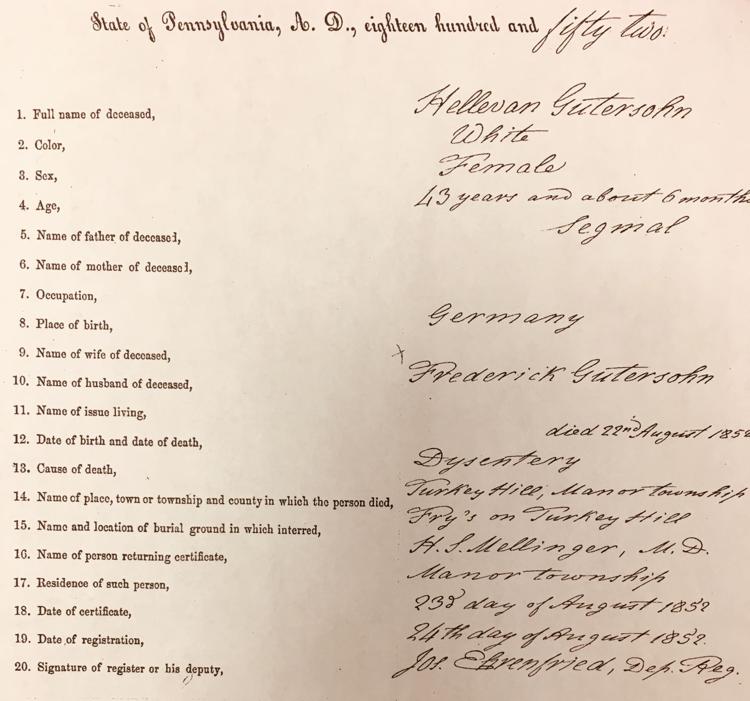 State of Pennsylvania, A. D., eighteen hundred and fifty two.
1. Full name of deceased, Hellevan Gutersohn
2. Color, White
3. Sex, Female
4. Age, 43 years and about 6 months
5. Name of father of deceased, Segmal
6. Name of mother of deceased,
7. Occupation,
8. Place of birth, Germany
9. Name of wife of deceased,
10. Name of husband of deceased, Frederick Gutersohn
11. Name of issue living,
12. Date of birth and date of death, died 22nd August 1852
13. Cause of death, Dysentery
14. Name of place, town or township and county in which the person died, Turkey Hill, Manor township
15. Name and location of burial ground in which interred, Fry's on Turkey Hill
16. Name of person returning certificate, H. S. Mellinger, M. D.
17. Residence of such person, Manor township
18. Date of certificate, 23d day of August 1852
19. Date of registration, 24th day of August 1852.
20. Signature of register or his deputy, Jos. Ehrenfried, Dep. Reg.